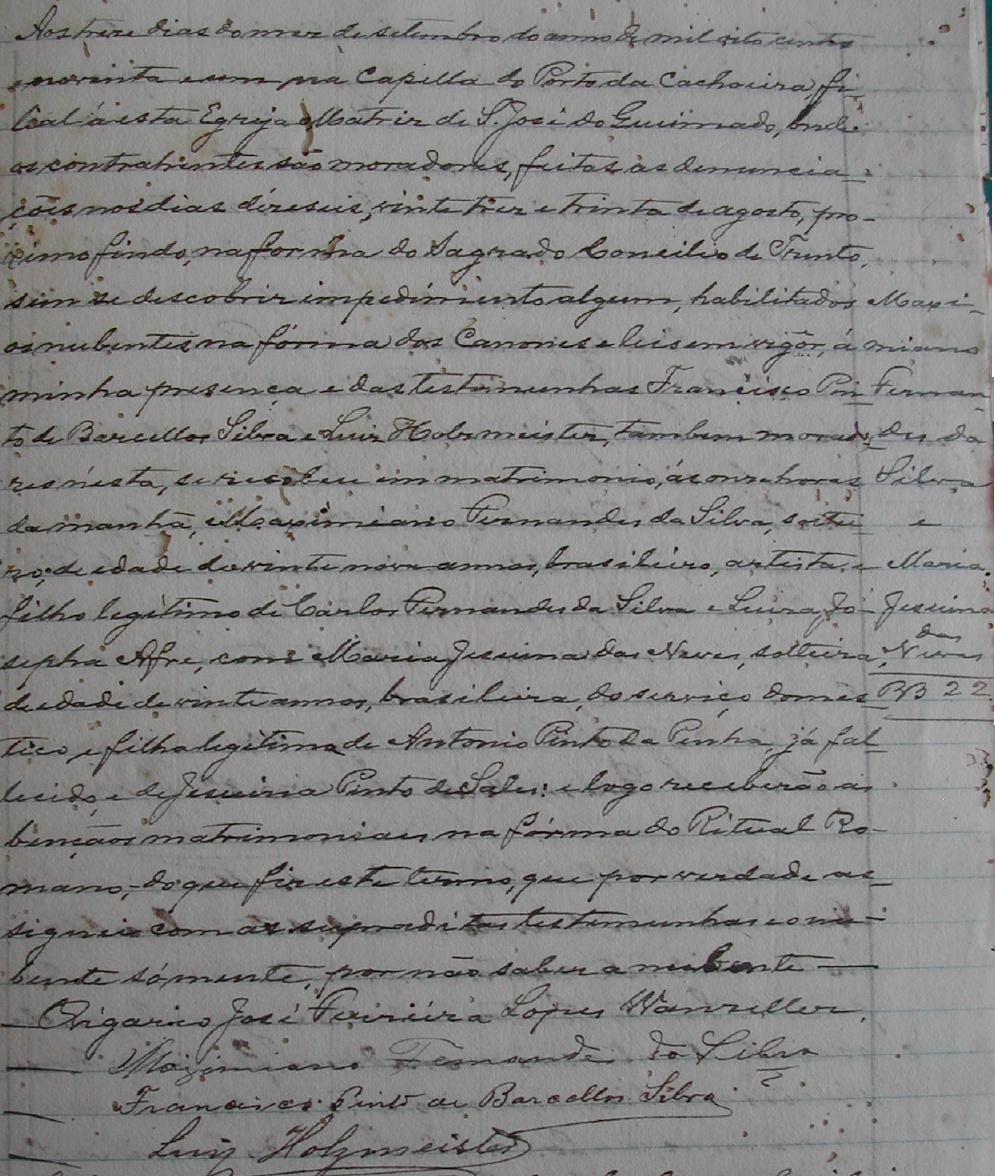 Aos treze dias do mez de setembro do anno de mil oito centos
e noventa e um na Capella do Porto da Cachoeira fi-
lial á esta Egreja Matriz de S. José do Queimado, onde
os contrahentes são moradores, feitas as denuncia-
ções nos dias dezeseis, vinte trez e trinta de agosto, pro-
ximo findo, na forma do Sagrado Concilio de Trento,
sem se descobrir impedimento algum, habilitados
os nubentes na fórma dos Canones e leis em vigôr, á
minha presença e das testemunhas Francisco Pin
to de Barcellos Silva e Luiz Holzmeister, tambem morado,
res nésta, se recebeu em matrimonio, ás onze horas
da manhã, Maximiano Fernandes da Silva, soltei
ro, de edade de vinte nove annos, brasileiro, artista, e
filho legítimo de Carlos Fernandes da Silva e Luiza Jo-
sepha Afre, com Maria Jesuina das Neves, solteira,
de edade de vinte annos, brasileira, do serviço domes
tico, e filha legítima de Antonio Pinto da Penha, já fal
lecido, e de Jesuina Pinto de Sales: e logo receberão as
bençãos matrimoniaes na fórma do Ritual Ro-
mano, do que fiz este termo, que por verdade as-
signei com as supraditas testemunhas e o nu-
bente sómente, por não saber a nubente
O Vigario José Ferreira Lopes Wanzeller.
Maximiano Fernande da Silva
Francisco Pinto de Barcellos Silva
Luiz Holzmeister
Maxi-
miano
Fernan
des da
Silva
e
Maria
Jesuina
das
Neves
22